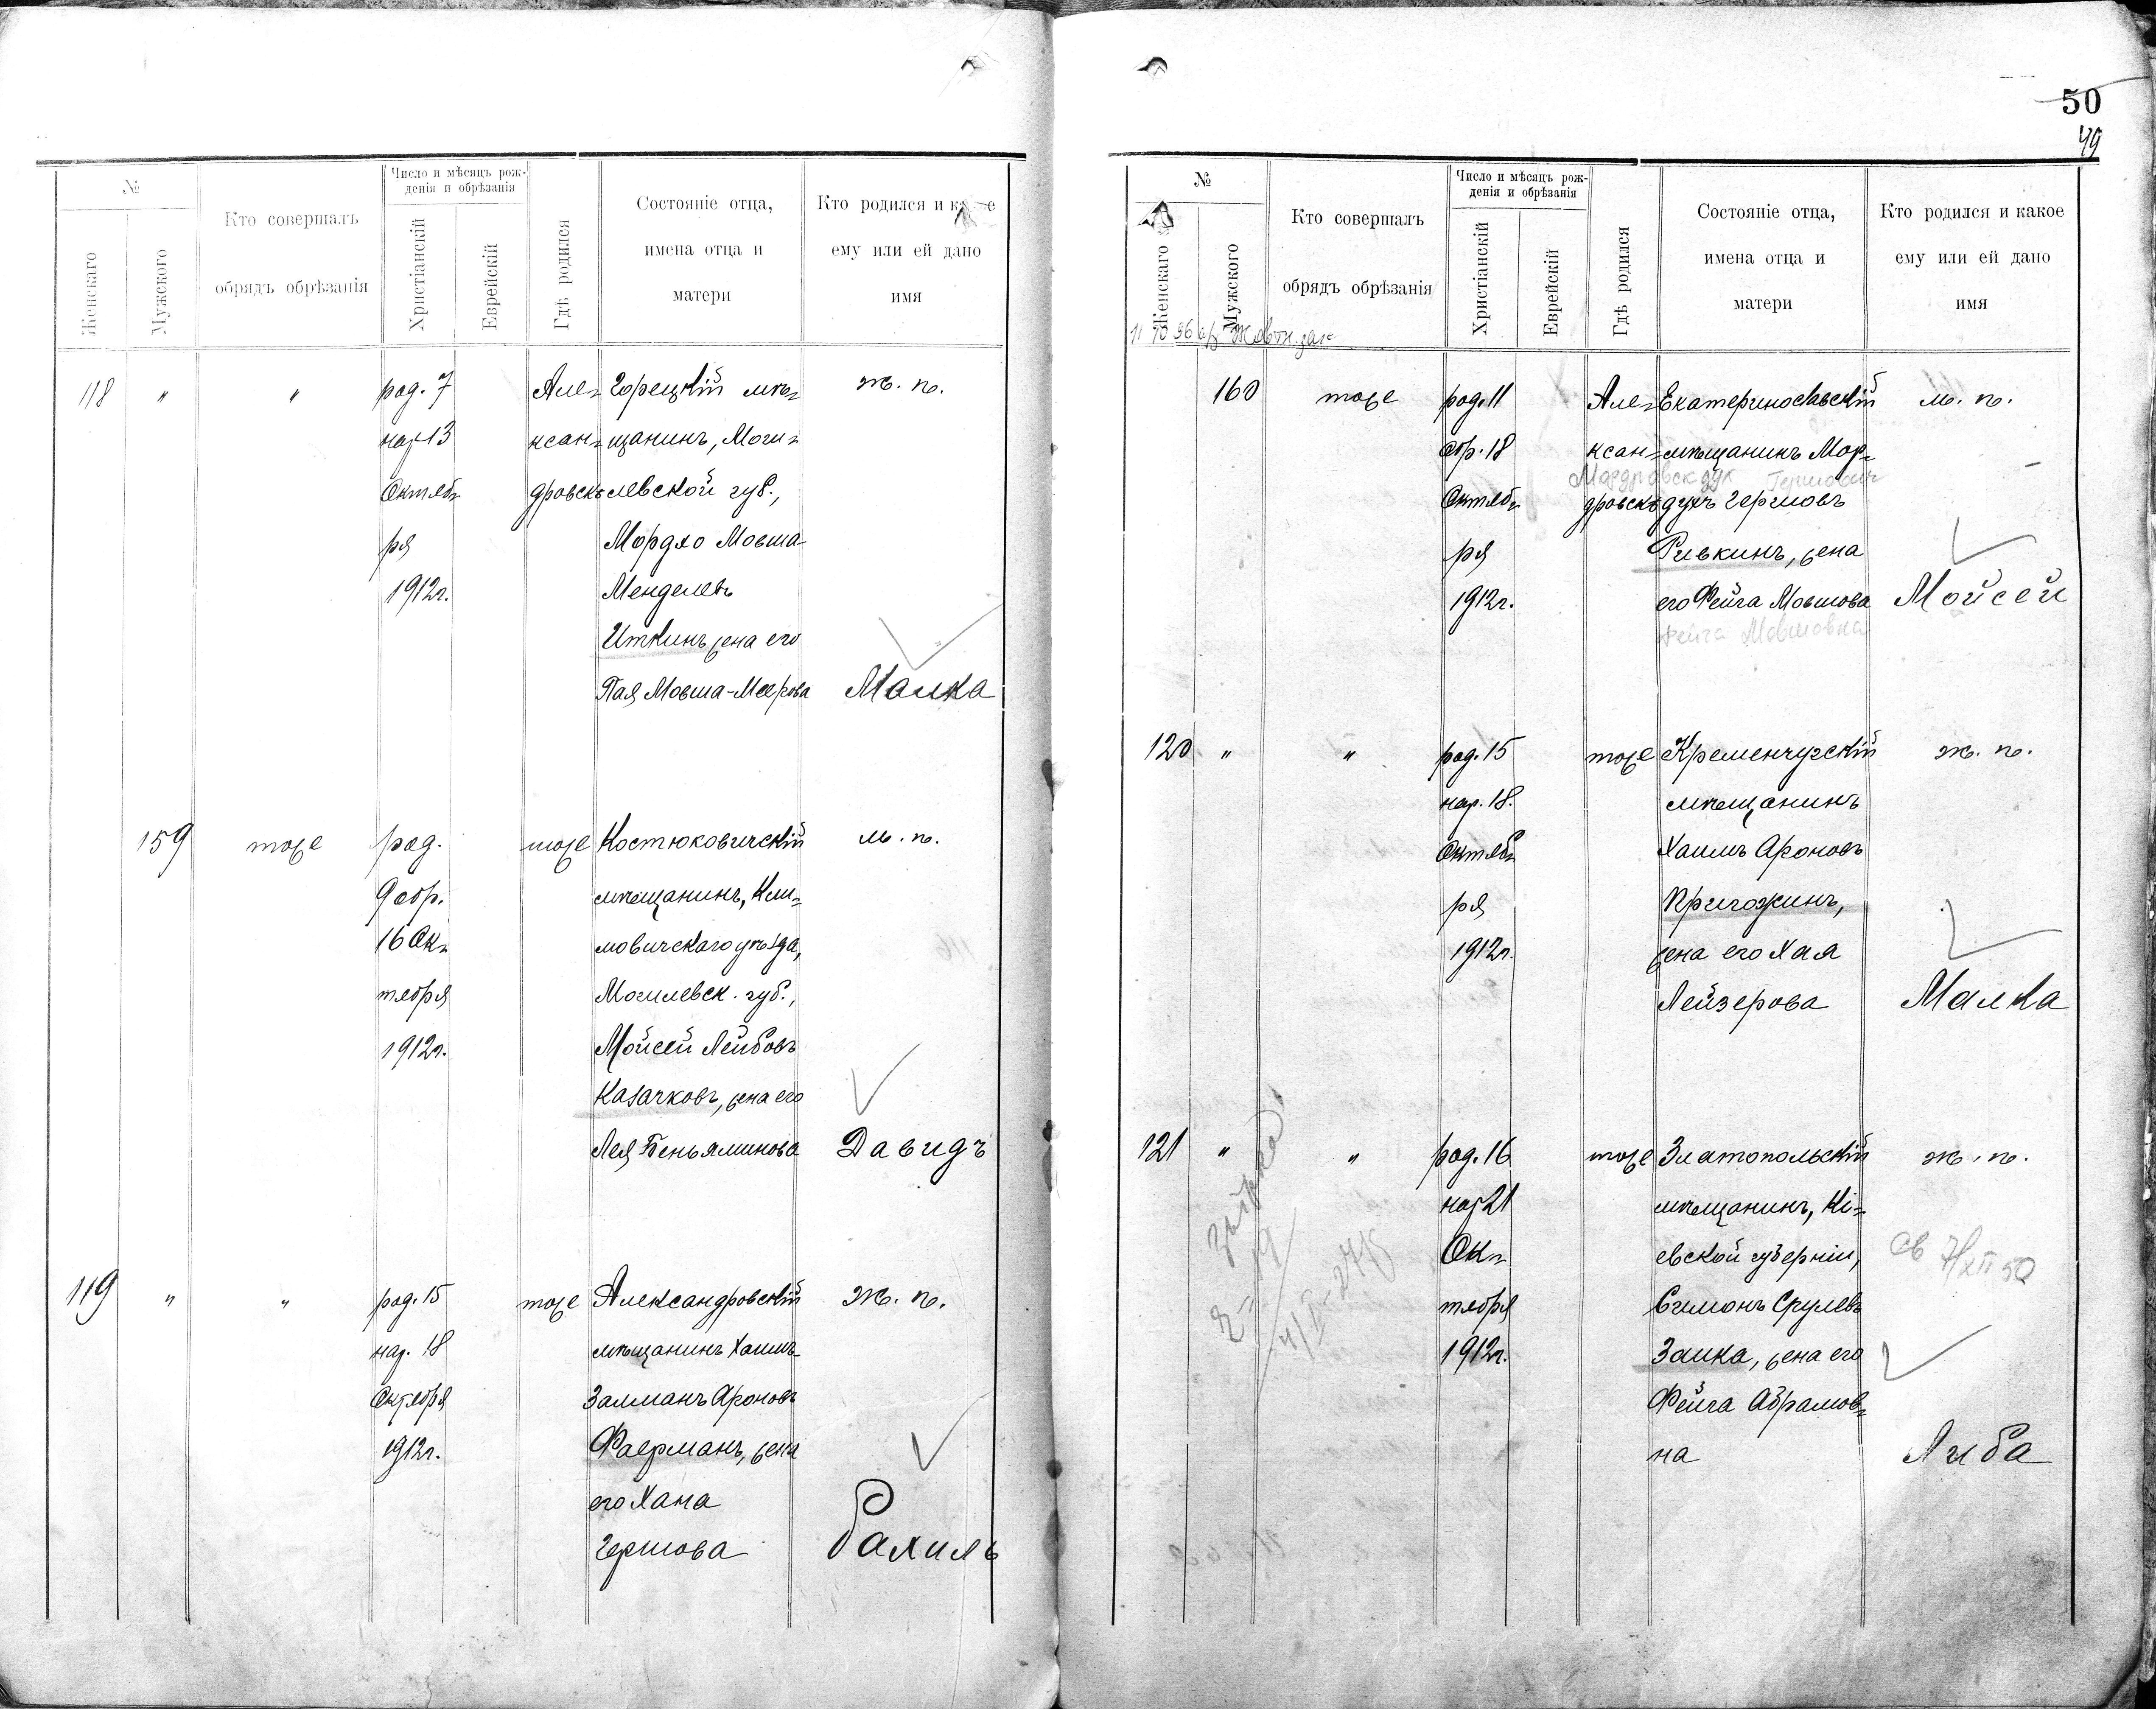 50
49
№
Женскаго
Мужского
Кто совершалъ
обрядъ обрѣзанія
Число и мѣсяцъ рож-
денія и обрѣзанія
Христіанскій
Еврейскій
Гдѣ родился
Состояніе отца,
имена отца и
матери
Кто родился и ка е
ему или ей дано
имя
118 " " род. 7 Але= Горецкій мѣ= ж. п.
нар 13 ксан= щанинъ, Моги=
Октяб= дровскъ левской губ.,
ря Мордхо Мовша
1912г. Менделевъ
Иткинъ, жена его
Пая Мовша-Меерова Малка
159 тоже род. тоже Костюковичскій м. п.
9 обр. мѣщанинъ, Кли=
16 Ок= мовичскаго уѣзда,
тября Могилевск. губ.,
1912г. Мойсей Лейбовъ
Казачковъ, жена его
Лея Беньяминова Давидъ
119 " " род. 15 тоже Александровскій ж. п.
нар. 18 мѣщанинъ Хаимъ-
Октября Залманъ Ароновъ
1912г. Фаерманъ, жена
его Хана
Гершова Рахиль
№
Женскаго
Мужского
Кто совершалъ
обрядъ обрѣзанія
Число и мѣсяцъ рож-
денія и обрѣзанія
Христіанскій
Еврейскій
Гдѣ родился
Состояніе отца,
имена отца и
матери
Кто родился и какое
ему или ей дано
имя
160 тоже род. 11 Але= Екатеринославскій м. п.
обр. 18 ксан= мѣщанинъ Мор=
Гершович
Октяб= дровскъ духъ Гершовъ
ря Ривкинъ, жена
1912г. его Фейга Мовшова Мойсей
Фейга Мовшовна
120 " " род. 15 тоже Кременчугскій ж. п.
нар. 18. мѣщанинъ
Октяб= Хаимъ Ароновъ
ря Пригожинъ,
1912г. жена его Хая
Лейзерова Малка
121 " " род. 16 тоже Златопольскій ж. п.
нар 21 мѣщанинъ, Кі=
Ок= евской губерніи,
св 7/XII 50
тября Симонъ Срулевъ
1912г. Заика, жена его
Фейга Абрамов=
на Либа